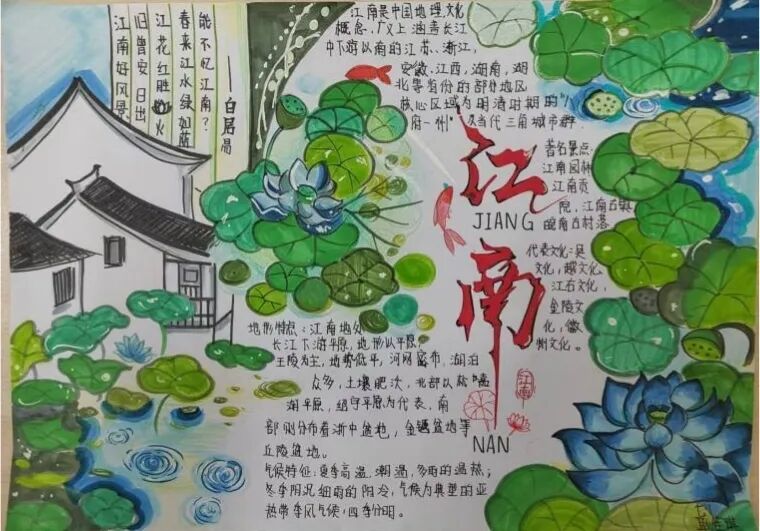 江南好风景
旧曾安 日出
江花红胜火
春来江水绿如蓝
能不忆江南？
——白居易
江南是中国地理文化
概念，广义上涵盖长江
中下游以南的江苏、浙江，
安徽、江西，湖南，湖
北等省份的部分地区
核心区域为明清时期的"八
府一州"及当代三角城市群
江
JIANG
南
NAN
江南
著名景点：
江南园林
江南贡
院，江南古镇
皖南古村落
代表文化：吴
文化，越文化
江右文化，
金陵文
化，徽
州文化。
地形特点：江南地处
长江下游平原，地形以平原，
丘陵为主，地势低平，河网密布，湖泊
众多，土壤肥沃，北部以杭嘉
湖平原，绍宁平原为代表，南
部则分布着浙中盆地，金衢盆地等
丘陵盆地。
气候特征：夏季高温、潮湿，多雨的湿热；
冬季阴沉细雨的阴冷，气候为典型的亚
热带季风气候，四季分明。